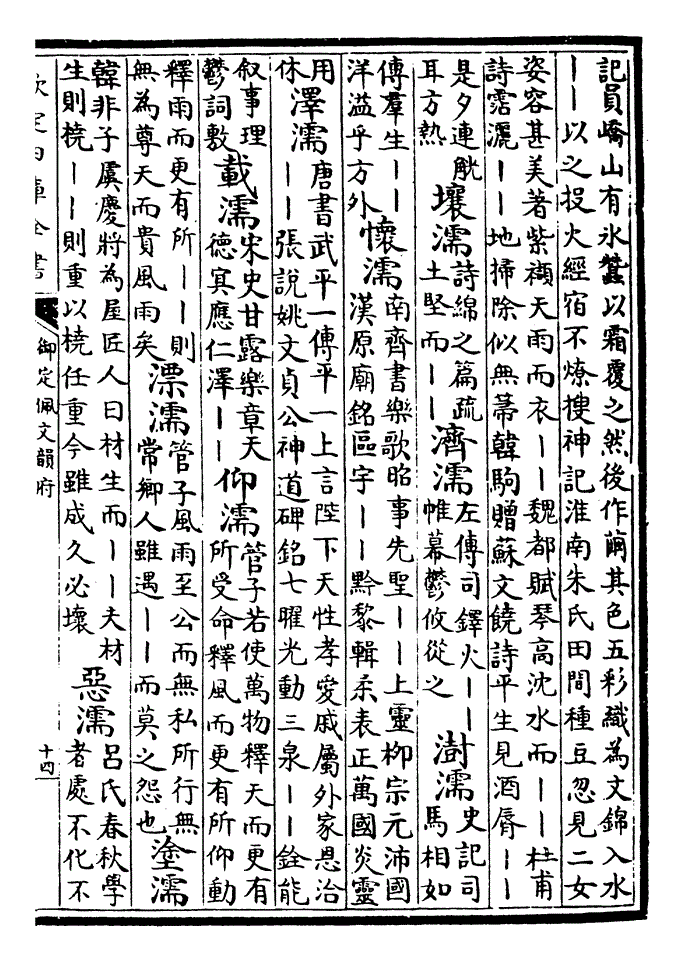 記員嶠山有氷蠶以霜覆之然後作繭其色五彩織為文錦入水
——以之投火經宿不燎搜神記淮南朱氏田間種豆忽見二女
姿容甚美著紫襭天雨而衣——魏都賦琴高沈水而——杜甫
詩霑灑——地掃除似無帚韓駒贈蘇文饒詩平生見酒脣——
是夕連觥耳方熱 壤濡 詩綿之篇疏土堅而—— 濟濡 左傳司鐸火——帷幕鬱攸從之 澍濡 史記司馬相如
傳羣生——洋溢乎方外 懷濡 南齊書樂歌昭事先聖——上靈柳宗元沛國漢原廟銘區宇——黔黎輯柔表正萬國炎靈
用休 澤濡 唐書武平一傳平一上言陛下天性孝愛戚屬外家恩洽——張說姚文貞公神道碑銘七曜光動三泉——銓能
叙事理鬱詞敷 載濡 宋史甘露樂章天德冥應仁澤—— 仰濡 管子若使萬物釋天而更有所受命釋風而更有所仰動
釋雨而更有所——則無為尊天而貴風雨矣 漂濡 管子風雨至公而無私所行無常鄉人雖遇——而莫之怨也 塗濡
韓非子虞慶將為屋匠人曰材生而——夫材生則橈——則重以橈任重今雖成久必壞 惡濡 呂氏春秋學者處不化不
欽定四庫全書
御定佩文韻府
十四